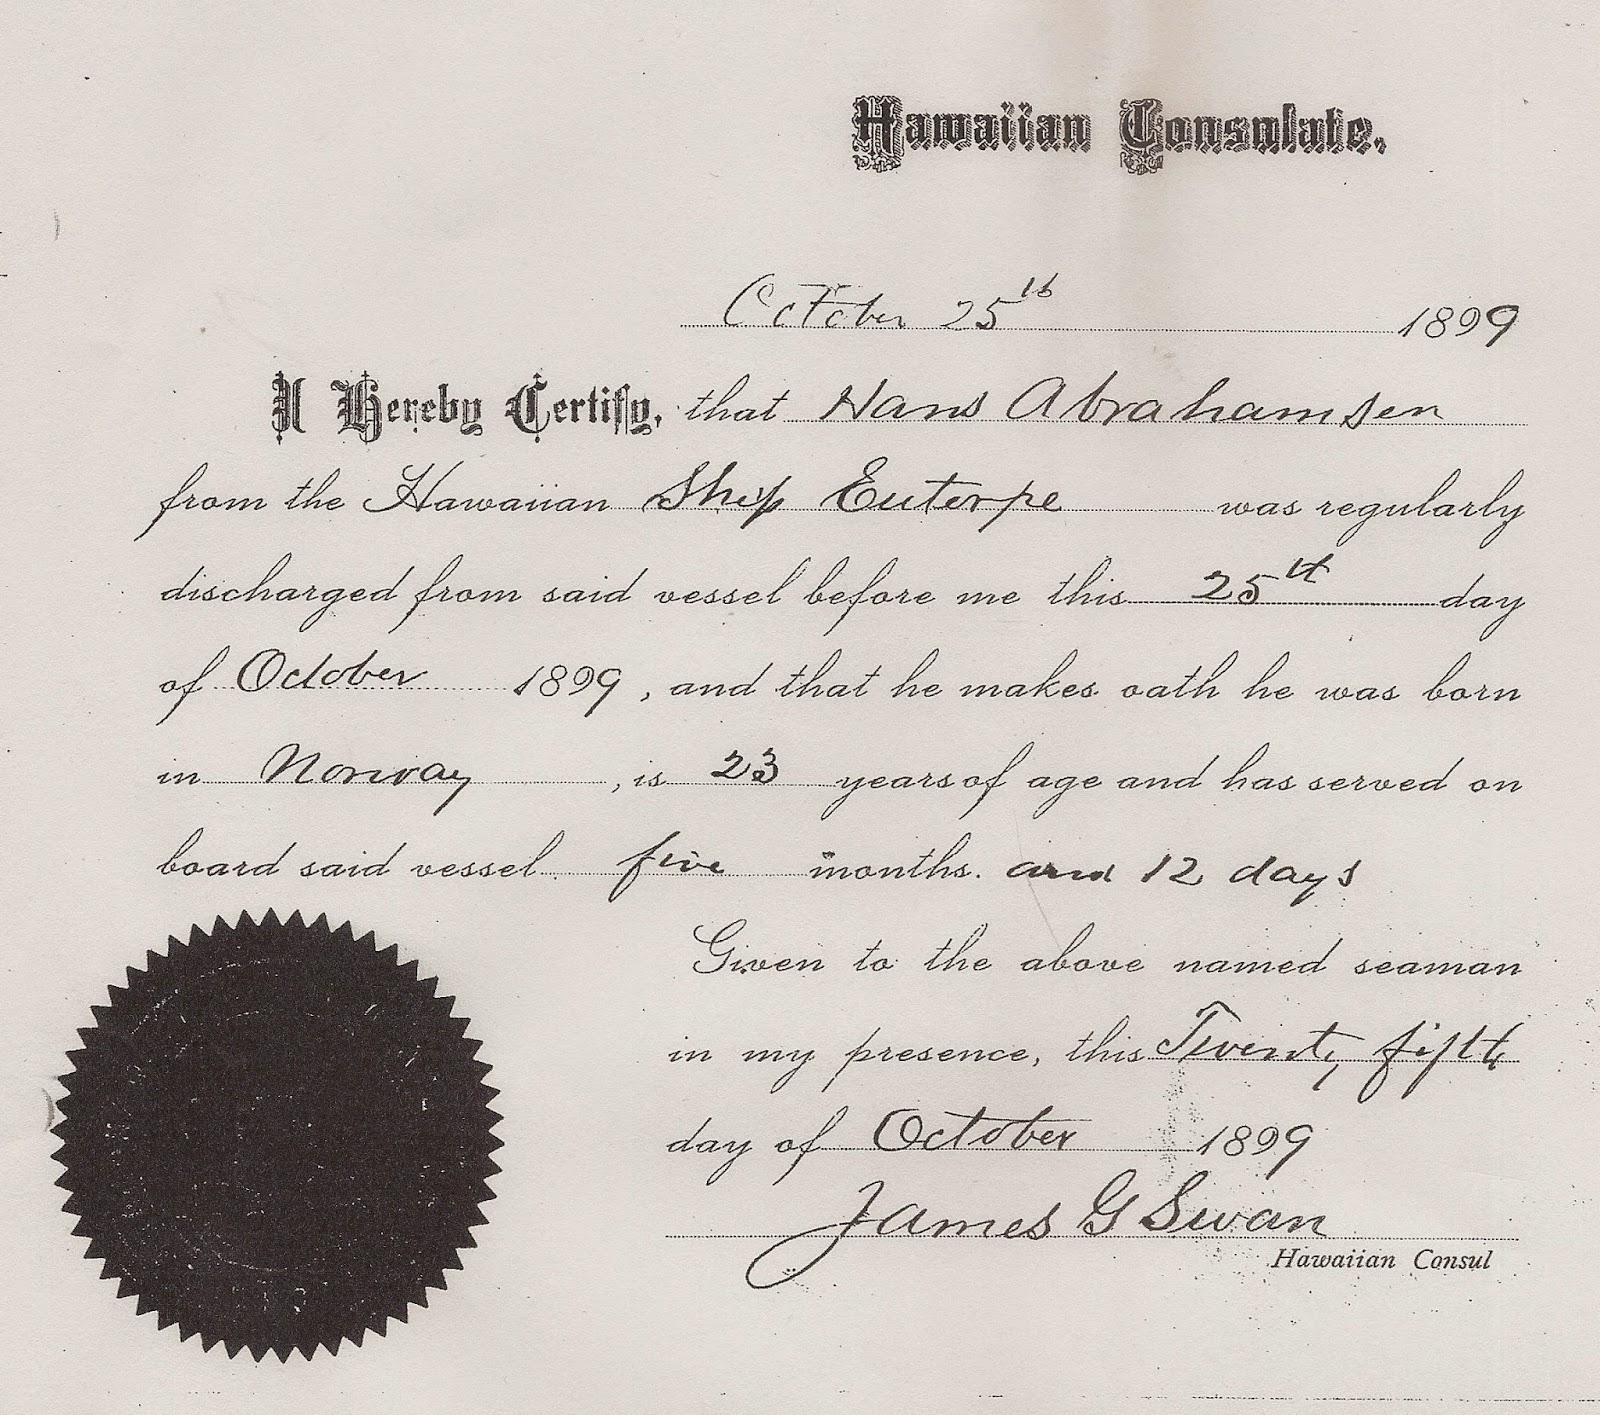 Hawaiian Consulate.
October 25th 1899
I Hereby Certify, that Hans Abrahamsen
from the Hawaiian Ship Euterpe was regularly
discharged from said vessel before me this 25th day
of October 1899, and that he makes oath he was born
in Norway, is 23 years of age and has served on
board said vessel five months. and 12 days
Given to the above named seaman
in my presence, this Twenty fifth
day of October 1899
James G Swan
Hawaiian Consul